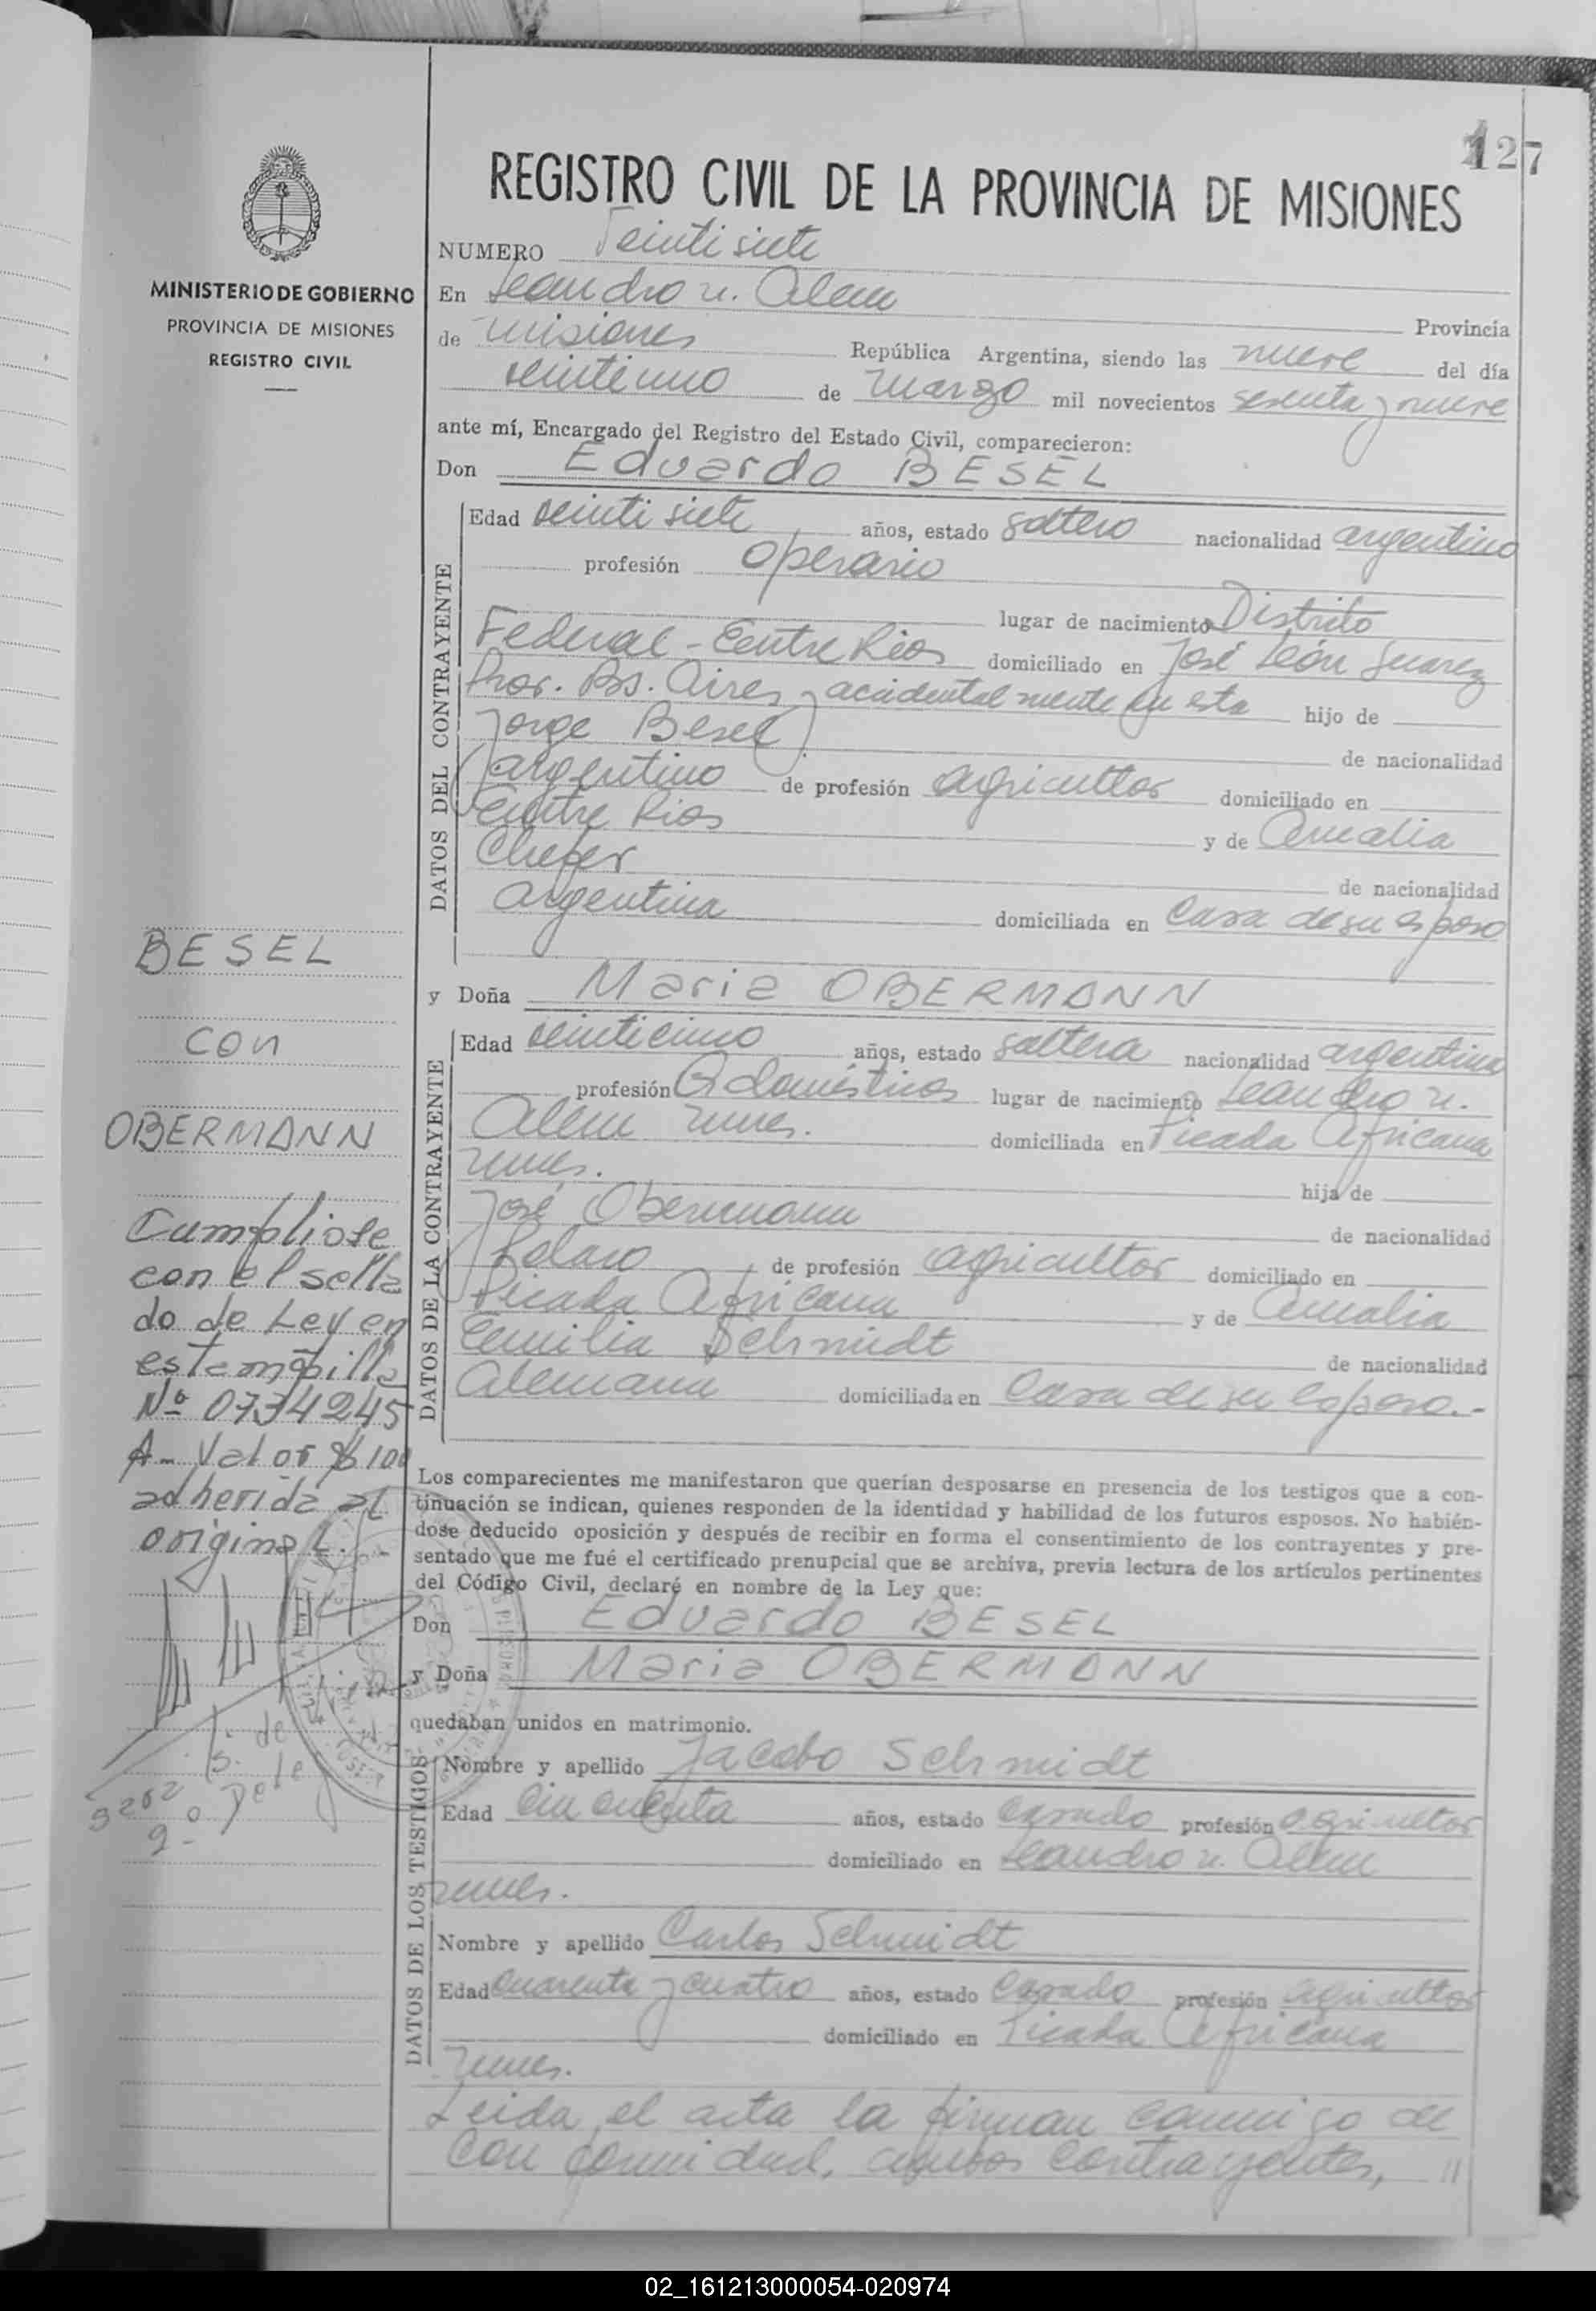 127
REGISTRO CIVIL DE LA PROVINCIA DE MISIONES
MINISTERIO DE GOBIERNO
PROVINCIA DE MISIONES
REGISTRO CIVIL
NUMERO Veinti siete
En Leandro n. Alem Provincia
de Misiones República Argentina, siendo las nueve del día
veintiuno de Marzo mil novecientos sesenta y nueve
ante mí, Encargado del Registro del Estado Civil, comparecieron:
Don Eduardo BESEL
DATOS DEL CONTRAYENTE
Edad veinti siete años, estado soltero nacionalidad argentino
profesión operario
lugar de nacimiento Distrito
Federal - Entre Rios domiciliado en José León Suarez
Prov. Bs. Aires y accidental mente en esta hijo de
Jorge Besel de nacionalidad
argentino de profesión agricultor domiciliado en
Entre Rios y de Amalia
Chefer de nacionalidad
argentina domiciliada en Casa de su esposo
y Doña Maria OBERMANN
DATOS DE LA CONTRAYENTE
Edad veinticinco años, estado soltera nacionalidad argentina
profesión Q. domésticos lugar de nacimiento Leandro n.
Alem Mnes. domiciliada en Picada Africana
Mnes. hija de
José Obermann de nacionalidad
Polaco de profesión agricultor domiciliado en
Picada Africana y de Amalia
Emilia Schmidt de nacionalidad
Alemana domiciliada en Casa de su esposo.-
BESEL
con
OBERMANN
Cumpliose
con el sella
do de Ley en
estampilla
Nº 0734245
A- Valor $ 100
adherida al
original.-
Los comparecientes me manifestaron que querían desposarse en presencia de los testigos que a con-
tinuación se indican, quienes responden de la identidad y habilidad de los futuros esposos. No habién-
dose deducido oposición y después de recibir en forma el consentimiento de los contrayentes y pre-
sentado que me fué el certificado prenupcial que se archiva, previa lectura de los artículos pertinentes
del Código Civil, declaré en nombre de la Ley que:
Don Eduardo BESEL
y Doña Maria OBERMANN
quedaban unidos en matrimonio.
DATOS DE LOS TESTIGOS
Nombre y apellido Jacobo Schmidt
Edad Cincuenta años, estado Casado profesión agricultor
domiciliado en Leandro n. Alem
Mnes.
Nombre y apellido Carlos Schmidt
Edad Cuarenta y cuatro años, estado Casado profesión agricultor
domiciliado en Picada Africana
Mnes.
Leida el acta la firman conmigo de
conformidad, ambos contrayentes, //
02_161213000054-020974